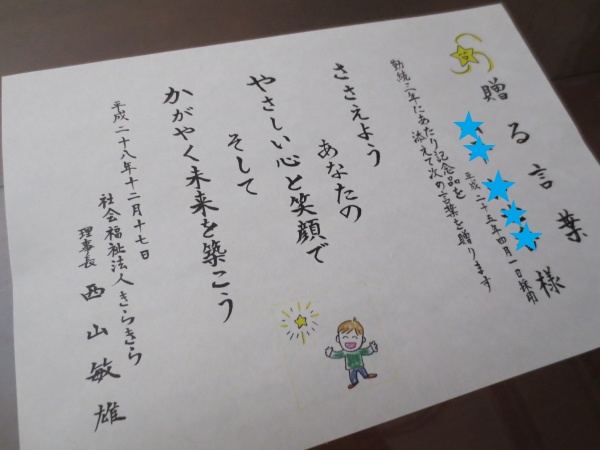 贈る言葉
様
平成二十五年四月一日採用
勤続三年にあたり記念品を
添えて次の言葉を贈ります
ささえよう
あなたの
やさしい心と笑顔で
そして
かがやく未来を築こう
平成二十八年十二月十七日
社会福祉法人きらきら
理事長 西山敏雄